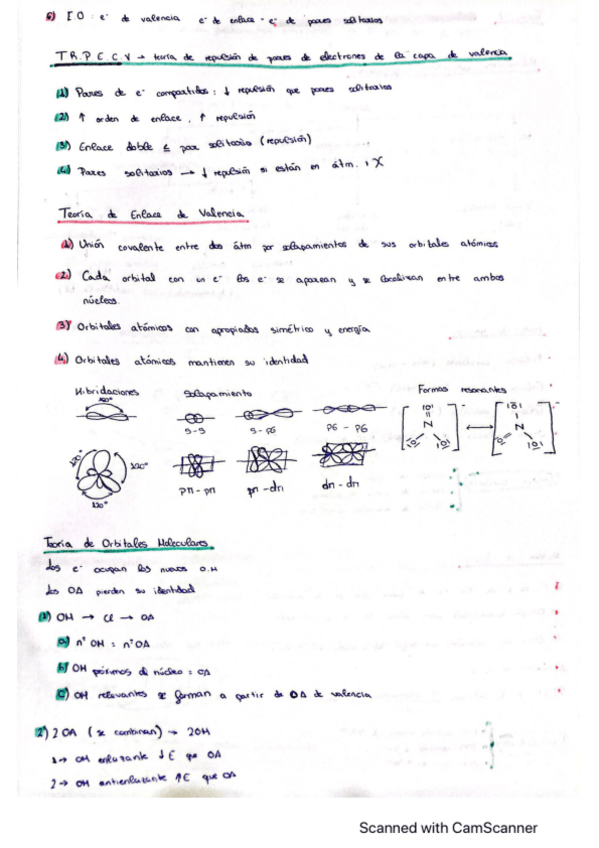 5) E.O : e⁻ de valencia e⁻ de enlace - e⁻ de pares solitarios
T.R.P.E.C.V → teoría de repulsión de pares de electrones de la capa de valencia
(1) Pares de e⁻ compartidos : ↓ repulsión que pares solitarios
(2) ↑ orden de enlace, ↑ repulsión
(3) Enlace doble ≤ par solitario (repulsión)
(4) Pares solitarios → ↓ repulsión si están en átm. ↑ X
Teoría de Enlace de Valencia
(1) Unión covalente entre dos átm por solapamientos de sus orbitales atómicos
2) Cada orbital con un e⁻ los e⁻ se aparean y se localizan entre ambos
núcleos.
3) Orbitales atómicos con apropiados simétrico y energía
(4) Orbitales atómicos mantienen su identidad
Hibridaciones Solapamiento Formas resonantes
180°
s-s s-pσ pσ-pσ
120° 120°
120°
pπ-pπ pπ-dπ dπ-dπ
|O| N |O| |O| ↔ |O| N O |O|
Teoría de Orbitales Moleculares
Los e⁻ ocupan los nuevos O.M
Los OA pierden su identidad
(1) OM → CL → OA
a) nº OM = nº OA
b) OM próximos al núcleo = OA
c) OM relevantes se forman a partir de OA de valencia
2) 2 OA (se combinan) → 2OM
1 → OM enlazante ↓E que OA
2 → OM antienlazante ↑E que OA
Scanned with CamScanner